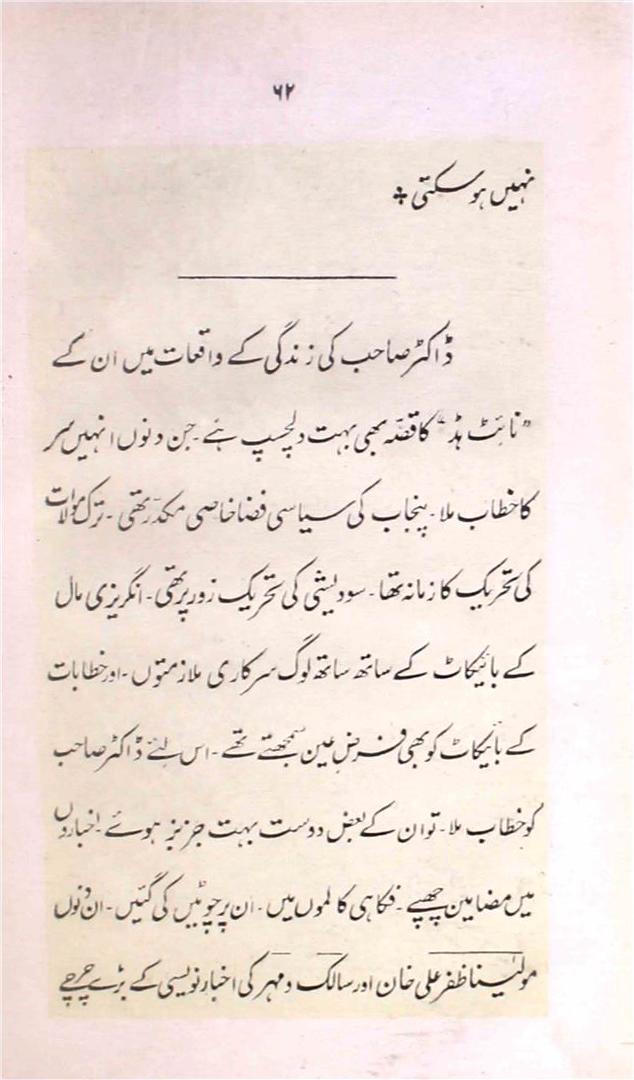 ۶۲
نہیں ہو سکتی
ڈاکٹر صاحب کی زندگی کے واقعات میں ان کے
"نائٹ ہڈ" کا قصّہ بھی بہت دلچسپ ہے۔ جن دنوں انہیں سر
کا خطاب ملا۔ پنجاب کی سیاسی فضا خاصی مکدّر تھی۔ ترک موالات
کی تحریک کا زمانہ تھا۔ سودیشی کی تحریک زور پر تھی۔ انگریزی مال
کے بائیکاٹ کے ساتھ ساتھ لوگ سرکاری ملازمتوں۔ اور خطابات
کے بائیکاٹ کو بھی فرضِ عین سمجھتے تھے۔ اس لئے ڈاکٹر صاحب
کو خطاب ملا۔ تو ان کے بعض دوست بہت جزبز ہوئے۔ اخباروں
میں مضامین چھپے۔ فکاہی کالموں میں۔ ان پر چوٹیں کی گئیں۔ ان دنوں
مولینا ظفر علی خان اور سالک و مہر کی اخبار نویسی کے بڑے چرچے